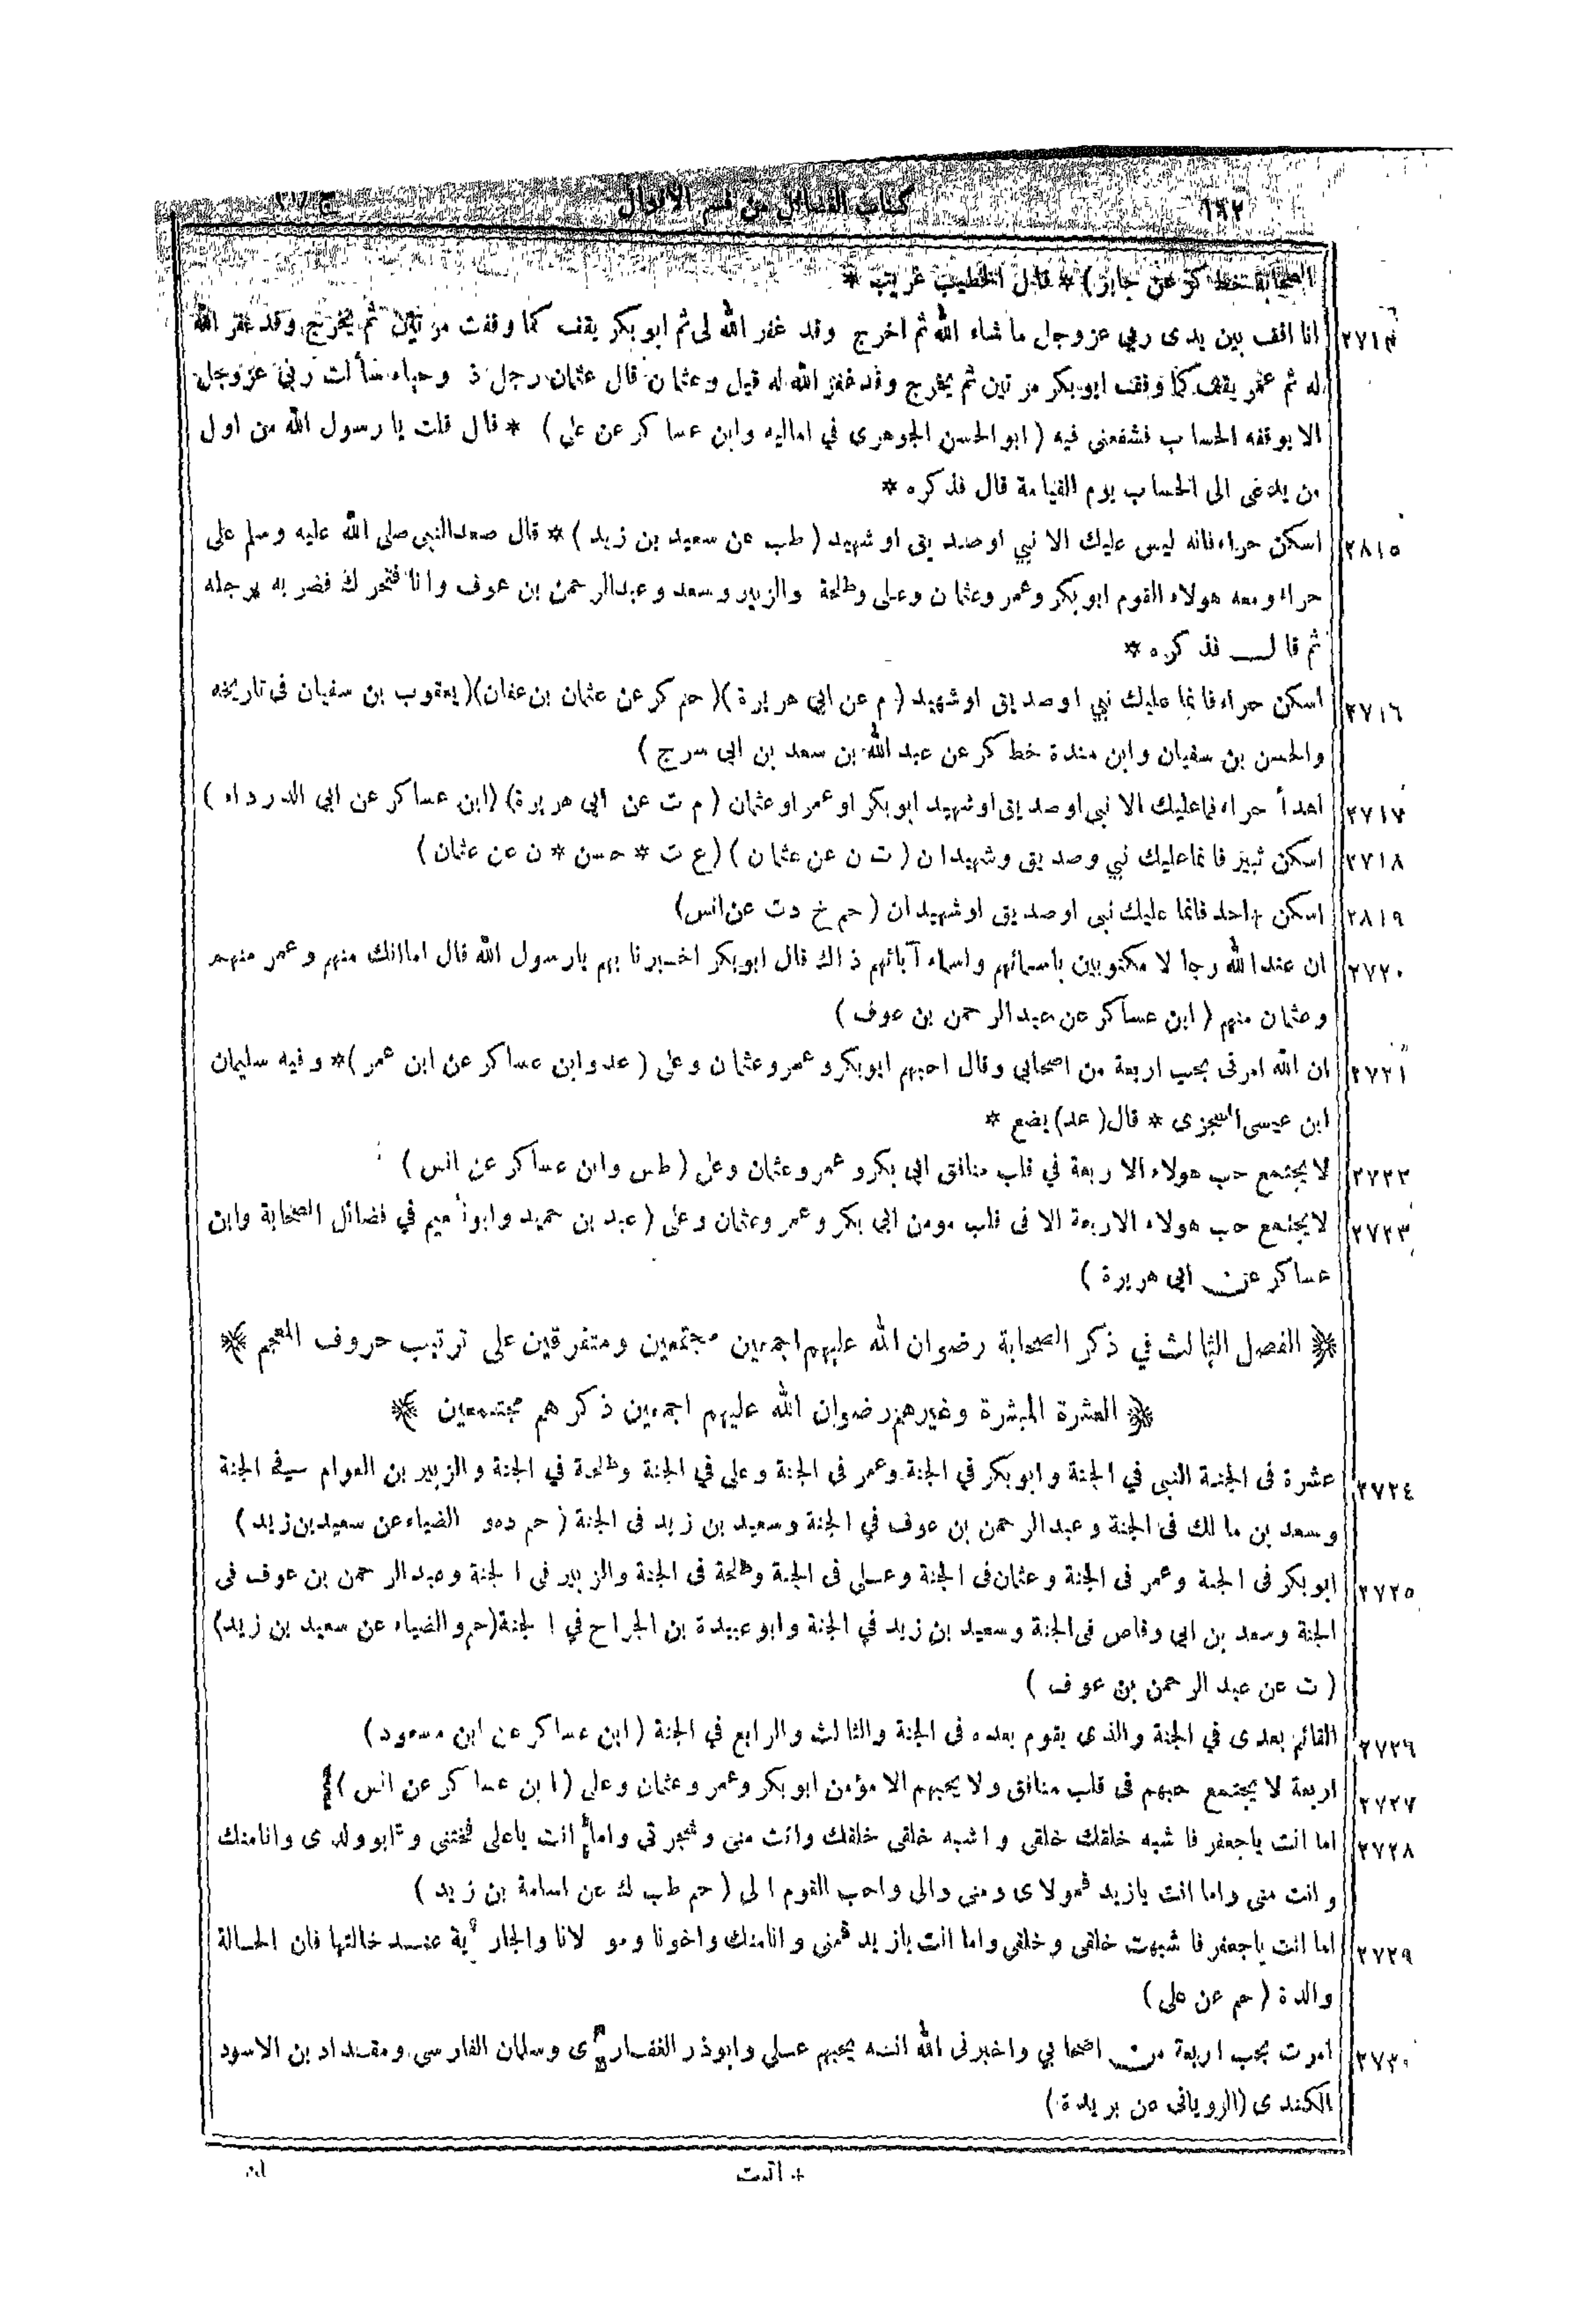 ١٦٢ كتاب الفضائل من قسم الاقوال ج/
الصحابة خط كر عن جابر) * قال الخطيب غريب *
٢٧١٤ انا اقف بين يدى ربي عزوجل ماشاء الله ثم اخرج وقد غفر الله لى ثم ابوبكر يقف كما وقفت مرتين ثم يخرج وقد غفر الله
له ثم عمر يقف كما وقف ابوبكر مرتين ثم يخرج وقد غفر الله له قيل وعثمان قال عثمان رجل ذ وحياء سألت ربي عزوجل
الا يوقفه الحساب فشفعنى فيه (ابو الحسن الجوهرى في اماليه وابن عساكر عن على) * قال قلت يا رسول الله من اول
من يدعى الى الحساب يوم القيامة قال فذكره *
٢٨١٥ اسكن حراء فانه ليس عليك الا نبي او صديق او شهيد (طب عن سعيد بن زيد) * قال صعد النبي صلى الله عليه وسلم على
حراء ومعه هولاء القوم ابوبكر وعمر وعثمان وعلى وطلحة والزبير وسعد وعبدالرحمن بن عوف وانا فتحرك فضربه برجله
ثم قال فذكره *
٢٧١٦ اسكن حراء فانما عليك نبي او صديق او شهيد (م عن ابى هريرة)(حم كر عن عثمان بن عفان)(يعقوب بن سفيان فى تاريخه
والحسن بن سفيان وابن مندة خط كر عن عبد الله بن سعد بن ابى سرج)
٢٧١٧ اهدأ حراء فماعليك الا نبي او صديق او شهيد ابوبكر او عمر او عثمان (م ت عن ابى هريرة) (ابن عساكر عن ابى الدرداء)
٢٧١٨ اسكن ثبير فانما عليك نبي وصديق وشهيدان (ت ن عن عثمان)(ع ت * حسن * ن عن عثمان)
٢٨١٩ اسكن + احد فانما عليك نبى او صديق او شهيدان (حم خ دت عن انس)
٢٧٢٠ ان عند الله رجا لا مكتوبين باسمائهم واسماء آبائهم ذاك قال ابوبكر اخبرنا بهم يارسول الله قال اماانك منهم وعمر منهم
وعثمان منهم (ابن عساكر عن عبد الرحمن بن عوف)
٢٧٢١ ان الله امرنى بحب اربعة من اصحابي وقال احبهم ابوبكر وعمر وعثمان وعلى (عد وابن عساكر عن ابن عمر)* وفيه سليمان
ابن عيسى السجزى * قال (عد) يضع *
٢٧٢٢ لا يجتمع حب هولاء الاربعة في قلب منافق ابى بكر وعمر وعثمان وعلى (طس وابن عساكر عن انس)
٢٧٢٣ لا يجتمع حب هولاء الاربعة الا فى قلب مومن ابى بكر وعمر وعثمان وعلى (عبد بن حميد وابونعيم في فضائل الصحابة وابن
عساكر عن ابى هريرة)
﴿ الفصل الثالث في ذكر الصحابة رضوان الله عليهم اجمعين مجتمعين ومتفرقين على ترتيب حروف المعجم ﴾
﴿ العشرة المبشرة وغيرهم رضوان الله عليهم اجمعين ذكرهم مجتمعين ﴾
٢٧٢٤ عشرة فى الجنة النبى في الجنة وابوبكر في الجنة وعمر فى الجنة وعلى في الجنة وطلحة في الجنة والزبير بن العوام في الجنة
وسعد بن مالك فى الجنة وعبدالرحمن بن عوف في الجنة وسعيد بن زيد فى الجنة (حم ده‍و الضياء عن سعيد بن زيد)
٢٧٢٥ ابوبكر فى الجنة وعمر فى الجنة وعثمان فى الجنة وعلى فى الجنة وطلحة فى الجنة والزبير فى الجنة وعبد الرحمن بن عوف فى
الجنة وسعد بن ابى وقاص فى الجنة وسعيد بن زيد في الجنة وابو عبيدة بن الجراح في الجنة (حم والضياء عن سعيد بن زيد)
(ت عن عبد الرحمن بن عوف)
٢٧٢٦ القائم بعدى في الجنة والذى يقوم بعده فى الجنة والثالث والرابع في الجنة (ابن عساكر عن ابن مسعود)
٢٧٢٧ اربعة لا يجتمع حبهم فى قلب منافق ولا يحبهم الا مؤمن ابوبكر وعمر وعثمان وعلى (ابن عساكر عن انس)
٢٧٢٨ اما انت ياجعفر فاشبه خلقك خلقى واشبه خلقى خلقك وانت منى وشجرتي واما انت ياعلى فختنى وابوولدى وانامنك
وانت منى واما انت يازيد فمولاى ومنى والى واحب القوم الى (حم طب ك عن اسامة بن زيد)
٢٧٢٩ اما انت ياجعفر فاشبهت خلقى وخلقى واما انت يازيد فمنى وانامنك واخونا ومولانا والجارية عند خالتها فان الخالة
والدة (حم عن على)
٢٧٣٠ امرت بحب اربعة من اصحابي واخبرنى الله انه يحبهم على وابوذر الغفارى وسلمان الفارسى ومقداد بن الاسود
الكندى (الرويانى عن بريدة)
+ اثبت